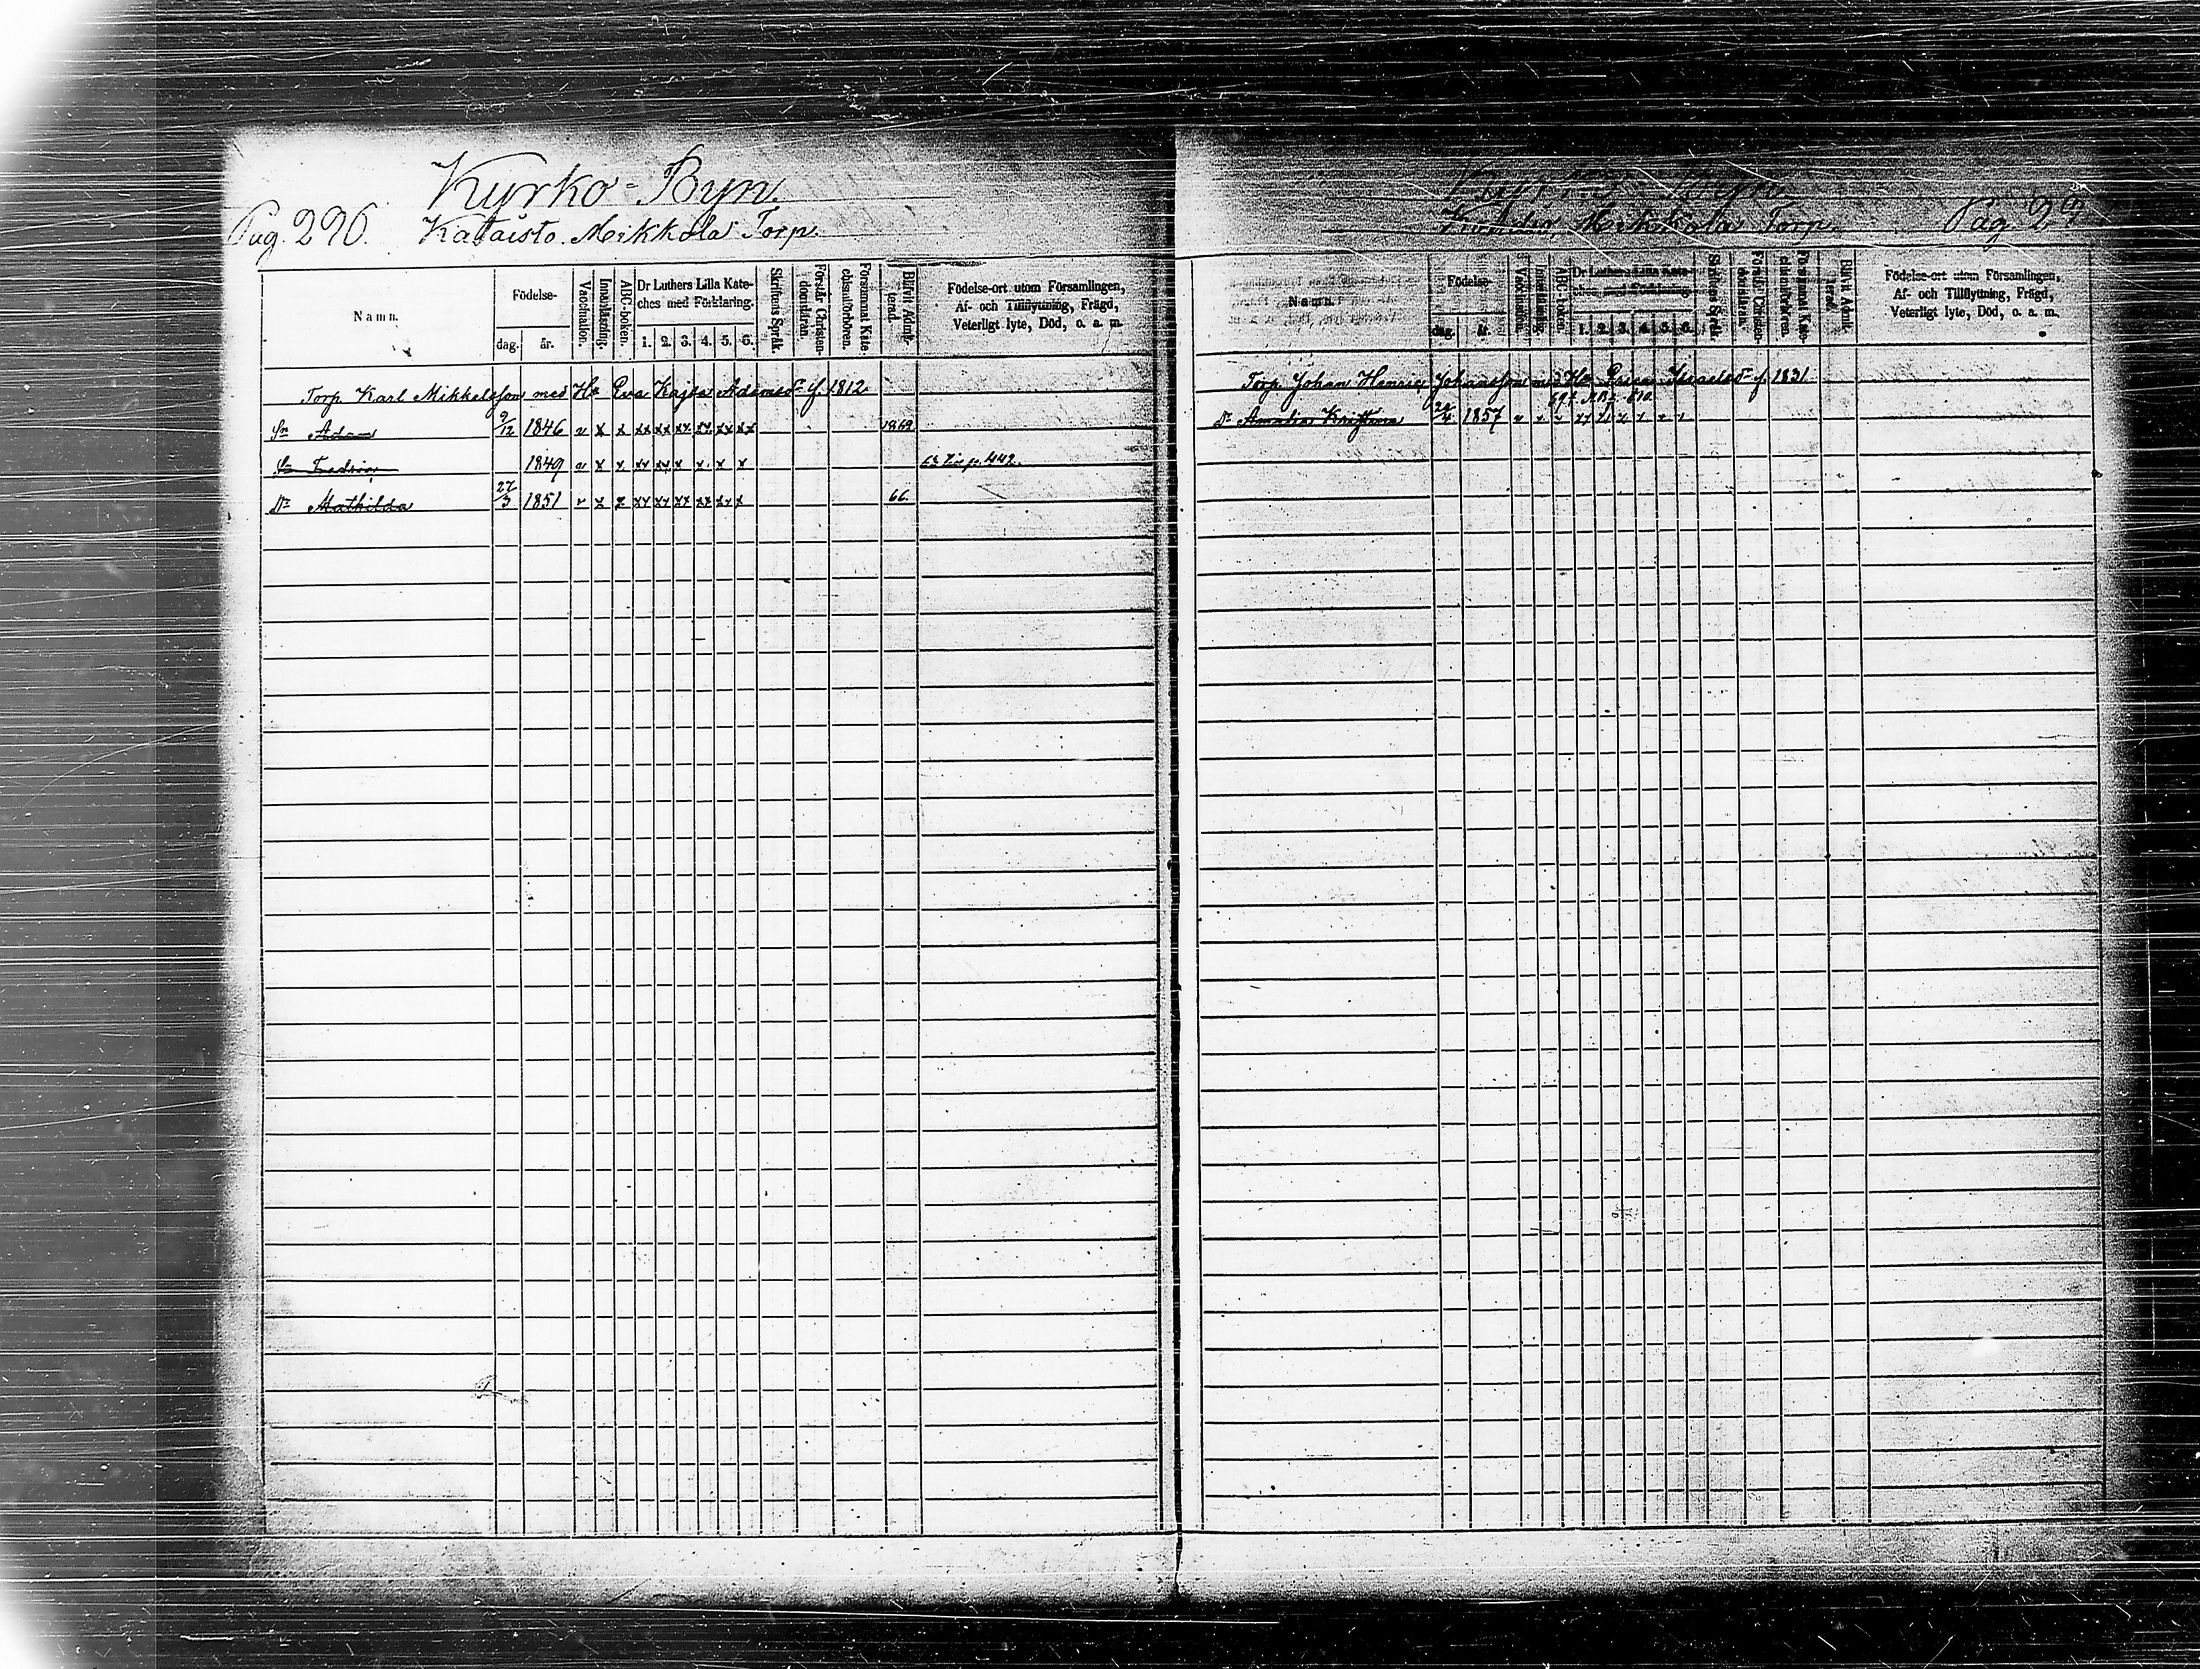 Kyrko-Byn.
Pag. 296. Kataisto. Mikkola Torp.
Namn.
Födelse-
dag. år.
Vaccination.
Innanläsning.
ABC-boken.
Dr Luthers Lilla Kate-
ches med Förklaring.
1. 2. 3. 4. 5. 6.
Skriftens Språk.
Förstår Christen-
domsläran.
Försummat Kate-
chisauförhören.
Blifvit Admit-
terad.
Födelse-ort utom Församlingen,
Af- och Tillflyttning, Frägd,
Veterligt lyte, Död, o. a. m.
Torp. Karl Mikkelsson med Hu Eva Kajsa Adamsdr f. 1812
Sn Adam 9/12 1846 v x x xx xx xx xx xx xx 1869
Sn Fredric 1849 v x x xx xx x x x x
Dr Mathilda 27/3 1851 v x x xx xx xx xx xx x 66.
Byn.
Mikkola Torp. Pag. 2
Namn.
Födelse-
dag. år.
Vaccination.
Innanläsning.
ABC-boken.
Dr Luthers Lilla Kate-
ches med Förklaring.
1. 2. 3. 4. 5. 6.
Skriftens Språk.
Förstår Christen-
domsläran.
Försummat Kate-
chisauförhören.
Blifvit Admit-
terad.
Födelse-ort utom Församlingen,
Af- och Tillflyttning, Frägd,
Veterligt lyte, Död, o. a. m.
Torp. Johan Henric Johansson med Hu Israelsdr f. 1831
Dr Amalia Kristina 1857